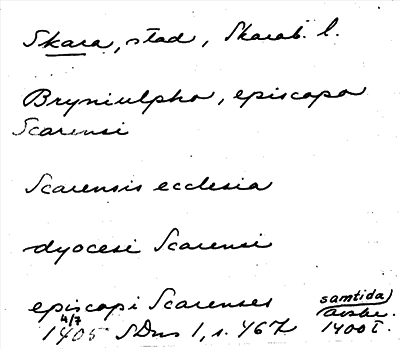 Skara, stad, Skarab. l.
Bryniulpho, episcopo
Scarensi
Scarensis ecclesia
dyocesi Scarensi
episcopi Scarenses
4/7 samtida
1405 SDns 1, s. 467 avskr. 1400 t.